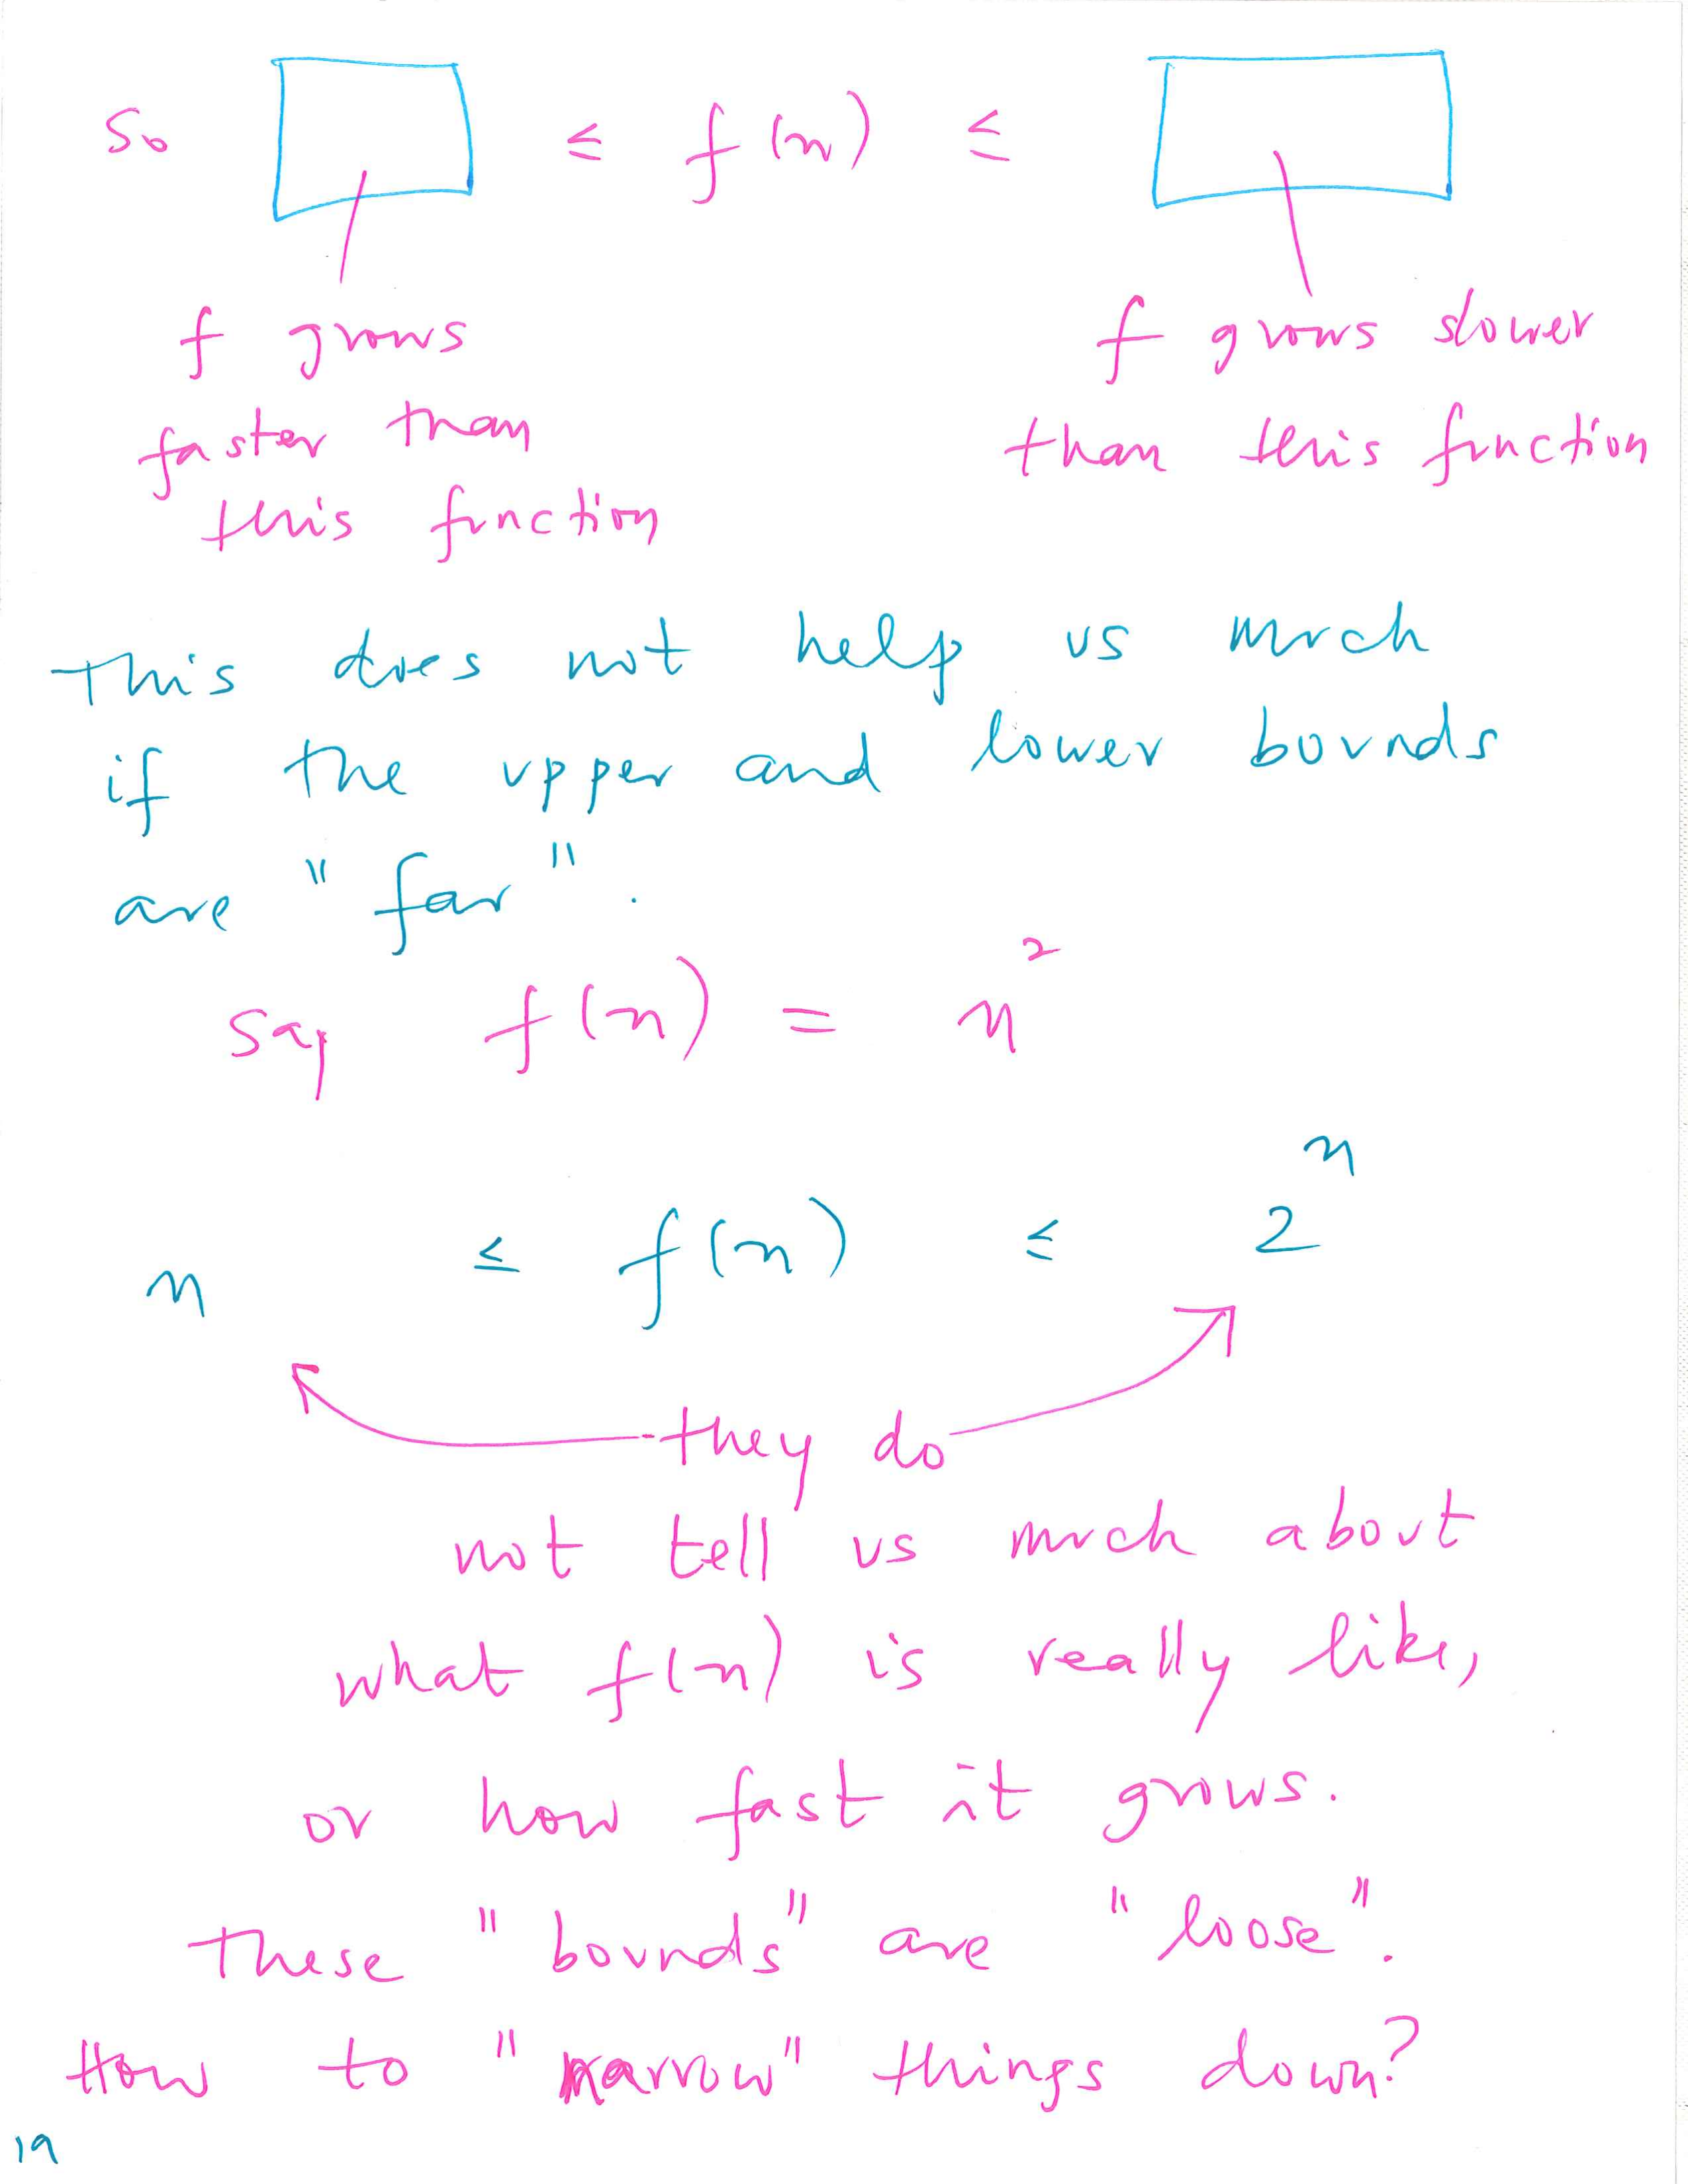 So ≤ f(n) ≤
f grows
faster than
this function
f grows slower
than this function
This does not help us much
if the upper and lower bounds
are "far".
Say f(n) = n²
n ≤ f(n) ≤ 2ⁿ
they do
not tell us much about
what f(n) is really like,
or how fast it grows.
These "bounds" are "loose".
How to "narrow" things down?
19